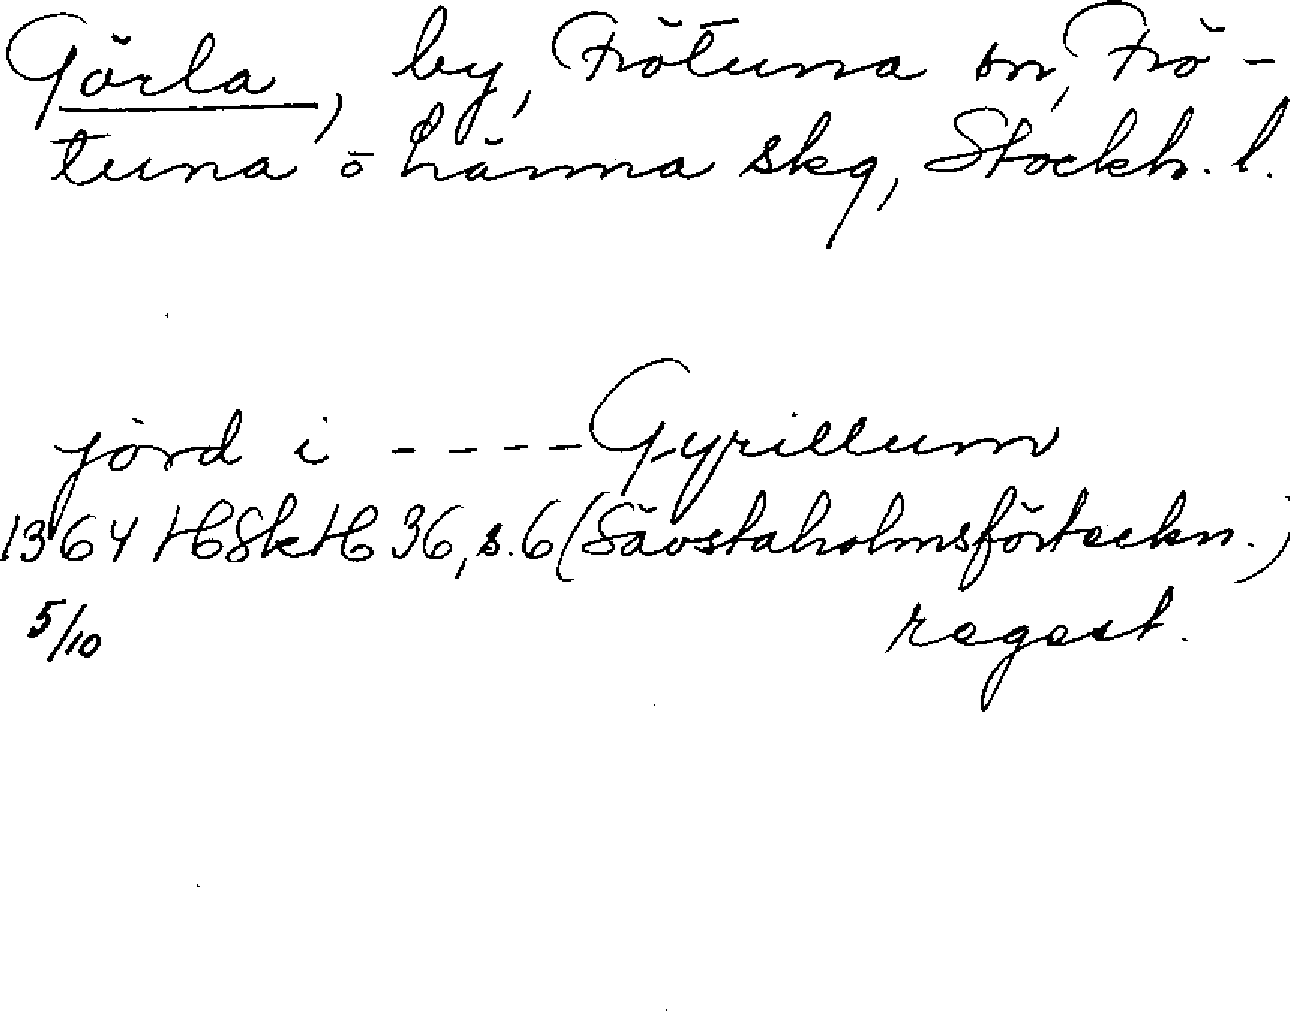 Görla, by, Frötuna sn, Frö-
tuna o Länna skg, Stockh. l.
jord i ---- Gyrillum
1364 HSkH 36, s. 6 (Sävstaholmsförteckn.)
5/10 regest.